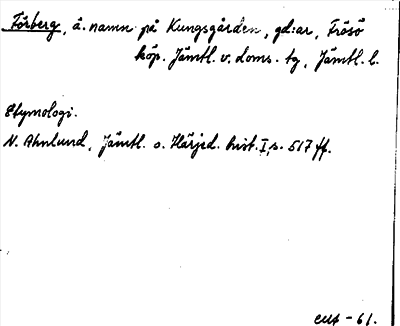 Förberg, ä. namn på Kungsgården, gd:ar, Frösö
köp. Jämtl. v. doms. tg, Jämtl. l.
Etymologi.
N. Ahnlund, Jämtl. o. Härjed. hist. I, s. 517 ff.
-61.